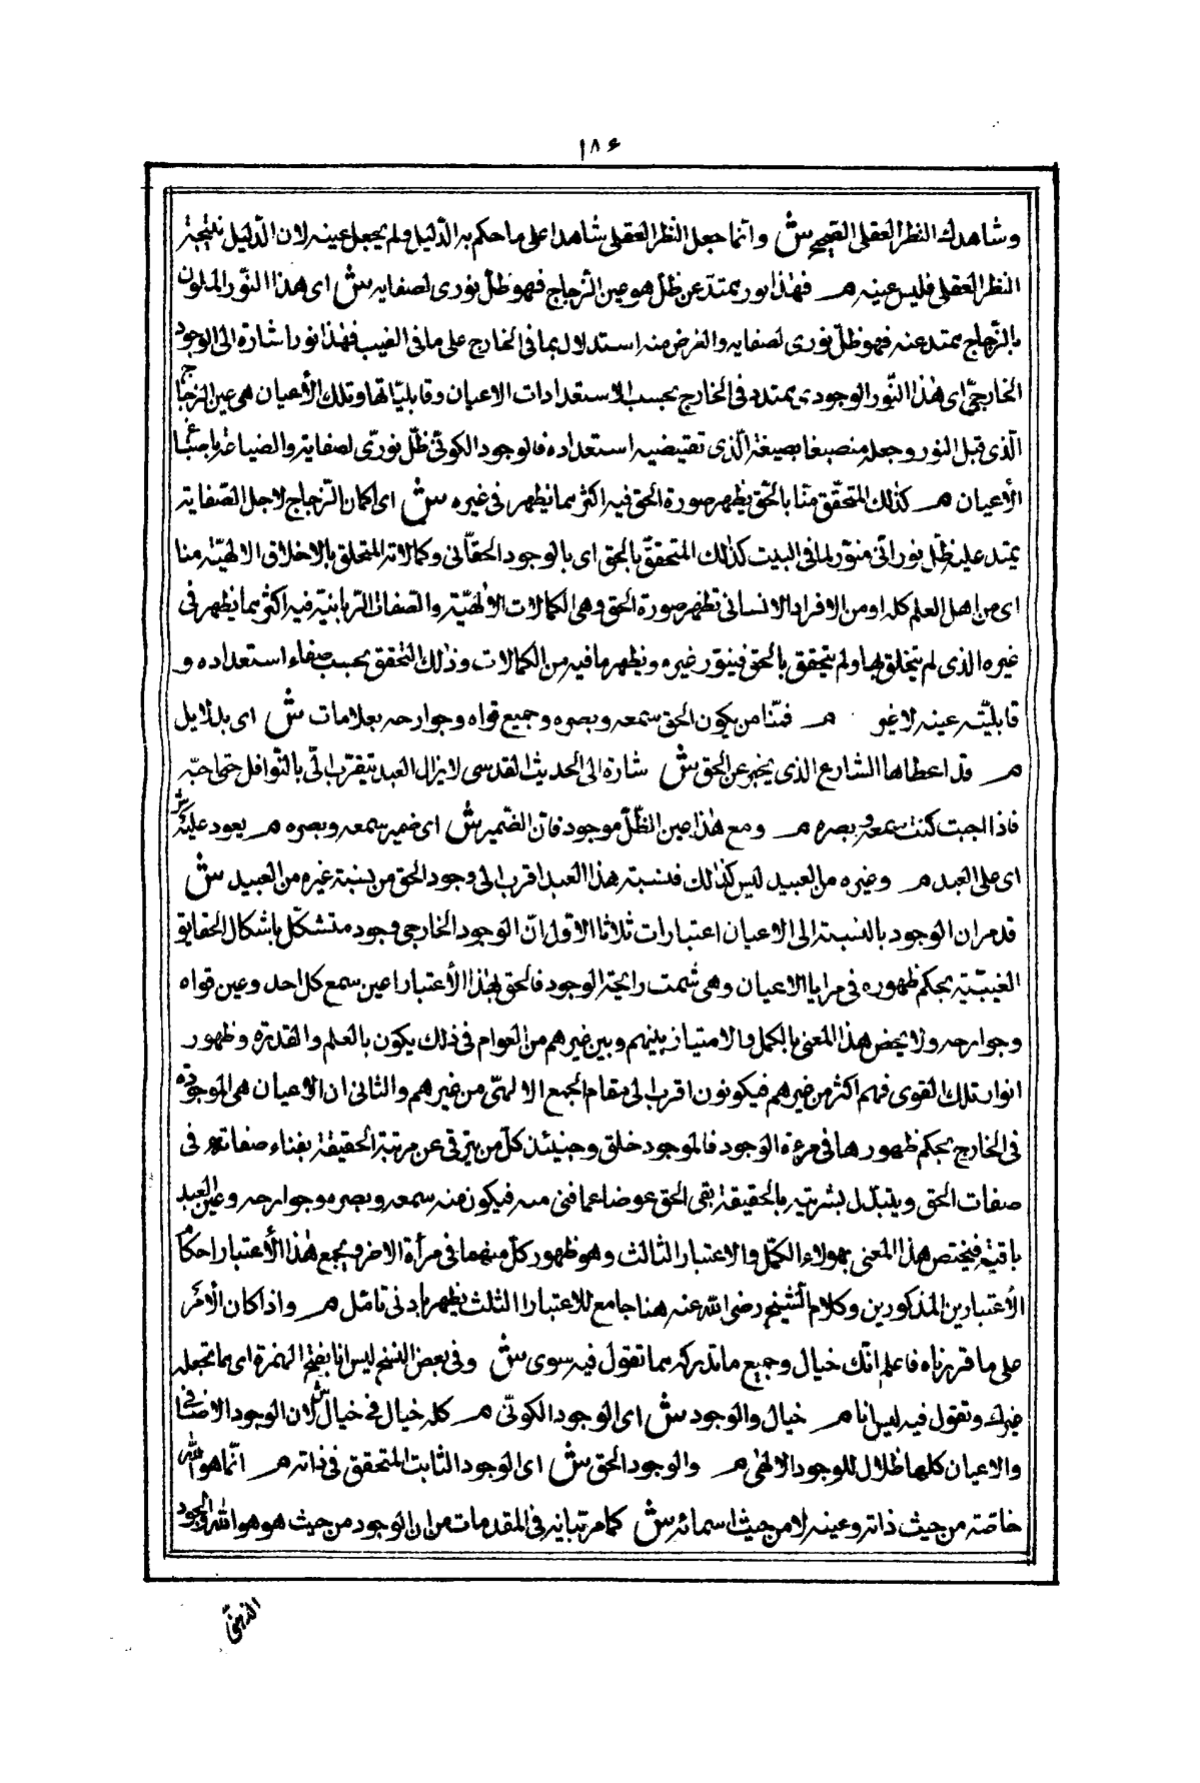 ١٨۶
وشاهدك النظر العقلى الصحيح ش وانما جعل النظر العقلى شاهدا على ما حكم به الدّليل ولم يجعل عينه لان الدّليل نتيجة
النظر العقلى فليس عينه م فهذا نور ممتدّ عن ظلّ هو عين الزّجاج فهو ظلّ نورى لصفايه ش اى هذا النّور الملون
بالزّجاج ممتد عنه فهو ظلّ نورى لصفايه والغرض منه استدلال بما فى الخارج على ما فى الغيب فهذا نور اشارة الى الوجود
الخارجىّ اى هذا النّور الوجودى ممتد فى الخارج بحسب الاستعدادات الاعيان وقابليّاتها وتلك الأعيان هى عين الزجاج
الّذى قبل النور وجعله منصبغا بصيغة الّذى تقتضيه استعداده فالوجود الكونىّ ظلّ نورىّ لصفايته والصباغة باصباغ
الأعيان م كذلك المتحقّق منّا بالحّق يظهر صورة الحق فيه اكثر مما يظهر فى غيره ش اى كما ان الزّجاج لاجل الصّفاية
يمتد عليه ظلّ نورانّى منوّر لما فى البيت كذلك المتحققّ بالحق اى بالوجود الحقّانى وكمالاته المتخلق بالاخلاق الالهيّة منا
اى من اهل العلم كله او من الافراد الانسانى تظهر صورة الحق وهى الكمالات الالهيّة والصفات الرّبانية فيه اكثر مما يظهر فى
غيره الذى لم يتخلق بها ولم يتحقق بالحق فينوّر غيره ويظهر ما فيه من الكمالات وذلك التحقق بحسب صفاء استعداده و
قابليّته عينه لا غير م فمنّا من يكون الحق سمعه وبصره وجميع قواه وجوارحه بعلامات ش اى بدلايل
م قد اعطاها الشارع الذى يخبر عن الحق ش شارة الى الحديث القدسى لا يزال العبد يتقرّب الىّ بالنّوافل حتى احبّه
فاذا احببت كنت سمعه وبصره م ومع هذا عين الظّلّ موجود فان الضّمير ش اى ضمير سمعه وبصره م يعود عليه ش
اى على العبد م وغيره من العبيد ليس كذلك فنسبة هذا العبد اقرب الى وجود الحق من نسبة غيره من العبيد ش
قد مر ان الوجود بالنسبة الى الاعيان اعتبارات ثلاثا الاوّل انّ الوجود الخارجى وجود متشكّل باشكال الحقايق
الغيبيّة بحكم ظهوره فى مرايا الاعيان وهى شمت رايحة الوجود فالحق بهذا الأعتبار عين سمع كل احد وعين قواه
وجوارحه ولا يخص هذا المعنى بالكمل والامتياز بينهم وبين غيرهم من العوام فى ذلك يكون بالعلم والقدرة وظهور
انوار تلك القوى فهم اكثر من غيرهم فيكونون اقرب الى مقام الجمع الالهىّ من غيرهم والثانى ان الاعيان هى الموجودة
فى الخارج بحكم ظهورها فى مرءة الوجود فالموجود خلق وحينئذ كلّ من يترقى عن مرتبة الحقيقة بفناء صفاته فى
صفات الحق ويتبدّل بشريّته بالحقيقة بقى الحق عوضا عما فنى منه فيكون منه سمعه وبصره وجوارحه وعين العبد
باقية فيختص هذا المعنى بهولاء الكمّل والاعتبار الثالث وهو ظهور كلّ منهما فى مرآة الاخر ويجمع هذا الأعتبار احكام
الأعتبارين المذكورين وكلام الشيخ رضى الله عنه هنا جامع للاعتبارا الثلث يظهر بادنى تامّل م واذا كان الأمر
على ما قررناه فاعلم انّك خيال وجميع ما تدركه مما تقول فيه سوى ش وفى بعض النسخ ليس انا بفتح الهمزة اى مما تجعله
غيرك وتقول فيه ليس انا م خيال والوجود ش اى الوجود الكونّى م كله خيال فى خيال ش لان الوجود الاضافى
والاعيان كلها ظلال للوجود الالهى م والوجود الحق ش اى الوجود الثابت المتحقق فى ذاته م انّما هو الله
خاصّة من حيث ذاته وعينه لا من حيث اسمائه ش كما مر تبيانه فى المقدمات من ان الوجود من حيث هو هو الله والوجود
الذهنىّ